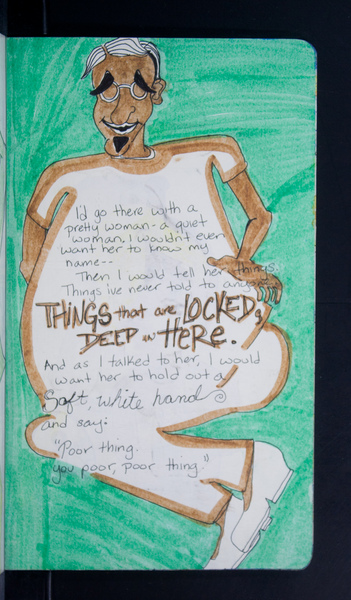 I'd go there with a
pretty woman - a quiet
woman. I wouldn't even
want her to know my
name--
Then I would tell her things.
Things ive never told to anyone.
THINGS that are LOCKED
DEEP in HERE.
And as I talked to her, I would
want her to hold out a
Soft, white hand
and say:
"Poor thing.
you poor, poor thing."